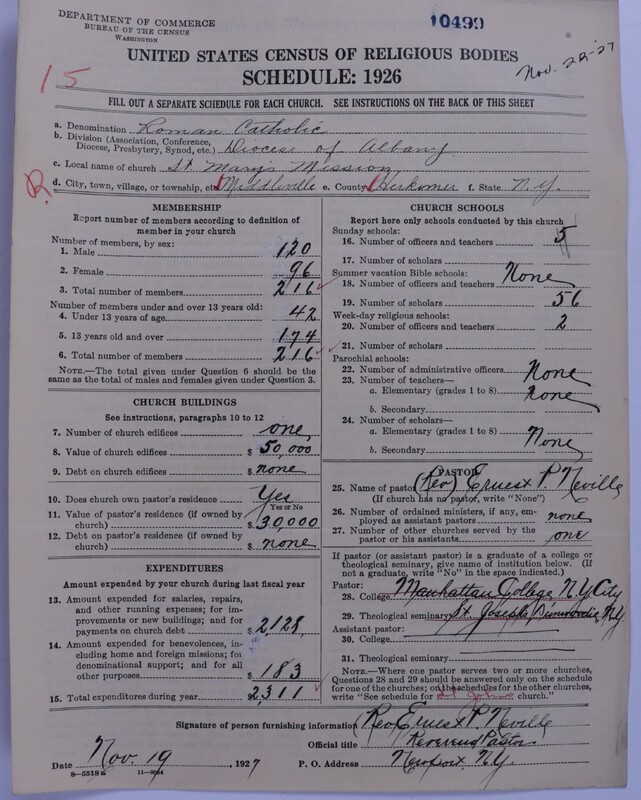 DEPARTMENT OF COMMERCE
BUREAU OF THE CENSUS
WASHINGTON
10499
UNITED STATES CENSUS OF RELIGIOUS BODIES
SCHEDULE: 1926
Nov. 22-27
15
FILL OUT A SEPARATE SCHEDULE FOR EACH CHURCH. SEE INSTRUCTIONS ON THE BACK OF THIS SHEET
a. Denomination Roman Catholic
b. Division (Association, Conference, Diocese, Presbytery, Synod, etc.) Diocese of Albany
c. Local name of church St Mary's Mission
R
d. City, town, village, or township, etc Middleville e. County Herkimer f. State N.Y.
MEMBERSHIP
Report number of members according to definition of member in your church
Number of members, by sex:
1. Male 120
2. Female 96
3. Total number of members 216
Number of members under and over 13 years old:
4. Under 13 years of age 42
5. 13 years old and over 174
6. Total number of members 216
NOTE.—The total given under Question 6 should be the same as the total of males and females given under Question 3.
CHURCH BUILDINGS
See instructions, paragraphs 10 to 12
7. Number of church edifices one
8. Value of church edifices $ 50,000
9. Debt on church edifices $ none
10. Does church own pastor's residence Yes
Yes or No
11. Value of pastor's residence (if owned by church) $ 30,000
12. Debt on pastor's residence (if owned by church) $ none
EXPENDITURES
Amount expended by your church during last fiscal year
13. Amount expended for salaries, repairs, and other running expenses; for improvements or new buildings; and for payments on church debt $ 2128
14. Amount expended for benevolences, including home and foreign missions; for denominational support; and for all other purposes $ 183
15. Total expenditures during year $ 2,311
CHURCH SCHOOLS
Report here only schools conducted by this church
Sunday schools:
16. Number of officers and teachers 5
17. Number of scholars
Summer vacation Bible schools:
18. Number of officers and teachers None
19. Number of scholars 56
Week-day religious schools:
20. Number of officers and teachers 2
21. Number of scholars
Parochial schools:
22. Number of administrative officers None
23. Number of teachers—
a. Elementary (grades 1 to 8) None
b. Secondary
24. Number of scholars—
a. Elementary (grades 1 to 8) None
b. Secondary
PASTOR
25. Name of pastor (Rev) Ernest P. Neville
(If church has no pastor, write "None")
26. Number of ordained ministers, if any, employed as assistant pastors none
27. Number of other churches served by the pastor or his assistants one
If pastor (or assistant pastor) is a graduate of a college or theological seminary, give name of institution below. (If not a graduate, write "No" in the space indicated.)
Pastor:
28. College Manhattan College N.Y City
29. Theological seminary St. Joseph's Dunwoodie, N.Y.
Assistant pastor:
30. College
31. Theological seminary
NOTE.—Where one pastor serves two or more churches, Questions 28 and 29 should be answered only on the schedule for one of the churches; on the schedules for the other churches, write "See schedule for St John church."
Signature of person furnishing information (Rev) Ernest P. Neville
Official title Reverend Pastor
Date Nov. 19, 1927 P. O. Address Newport N.Y.
8—5518a 11—9064